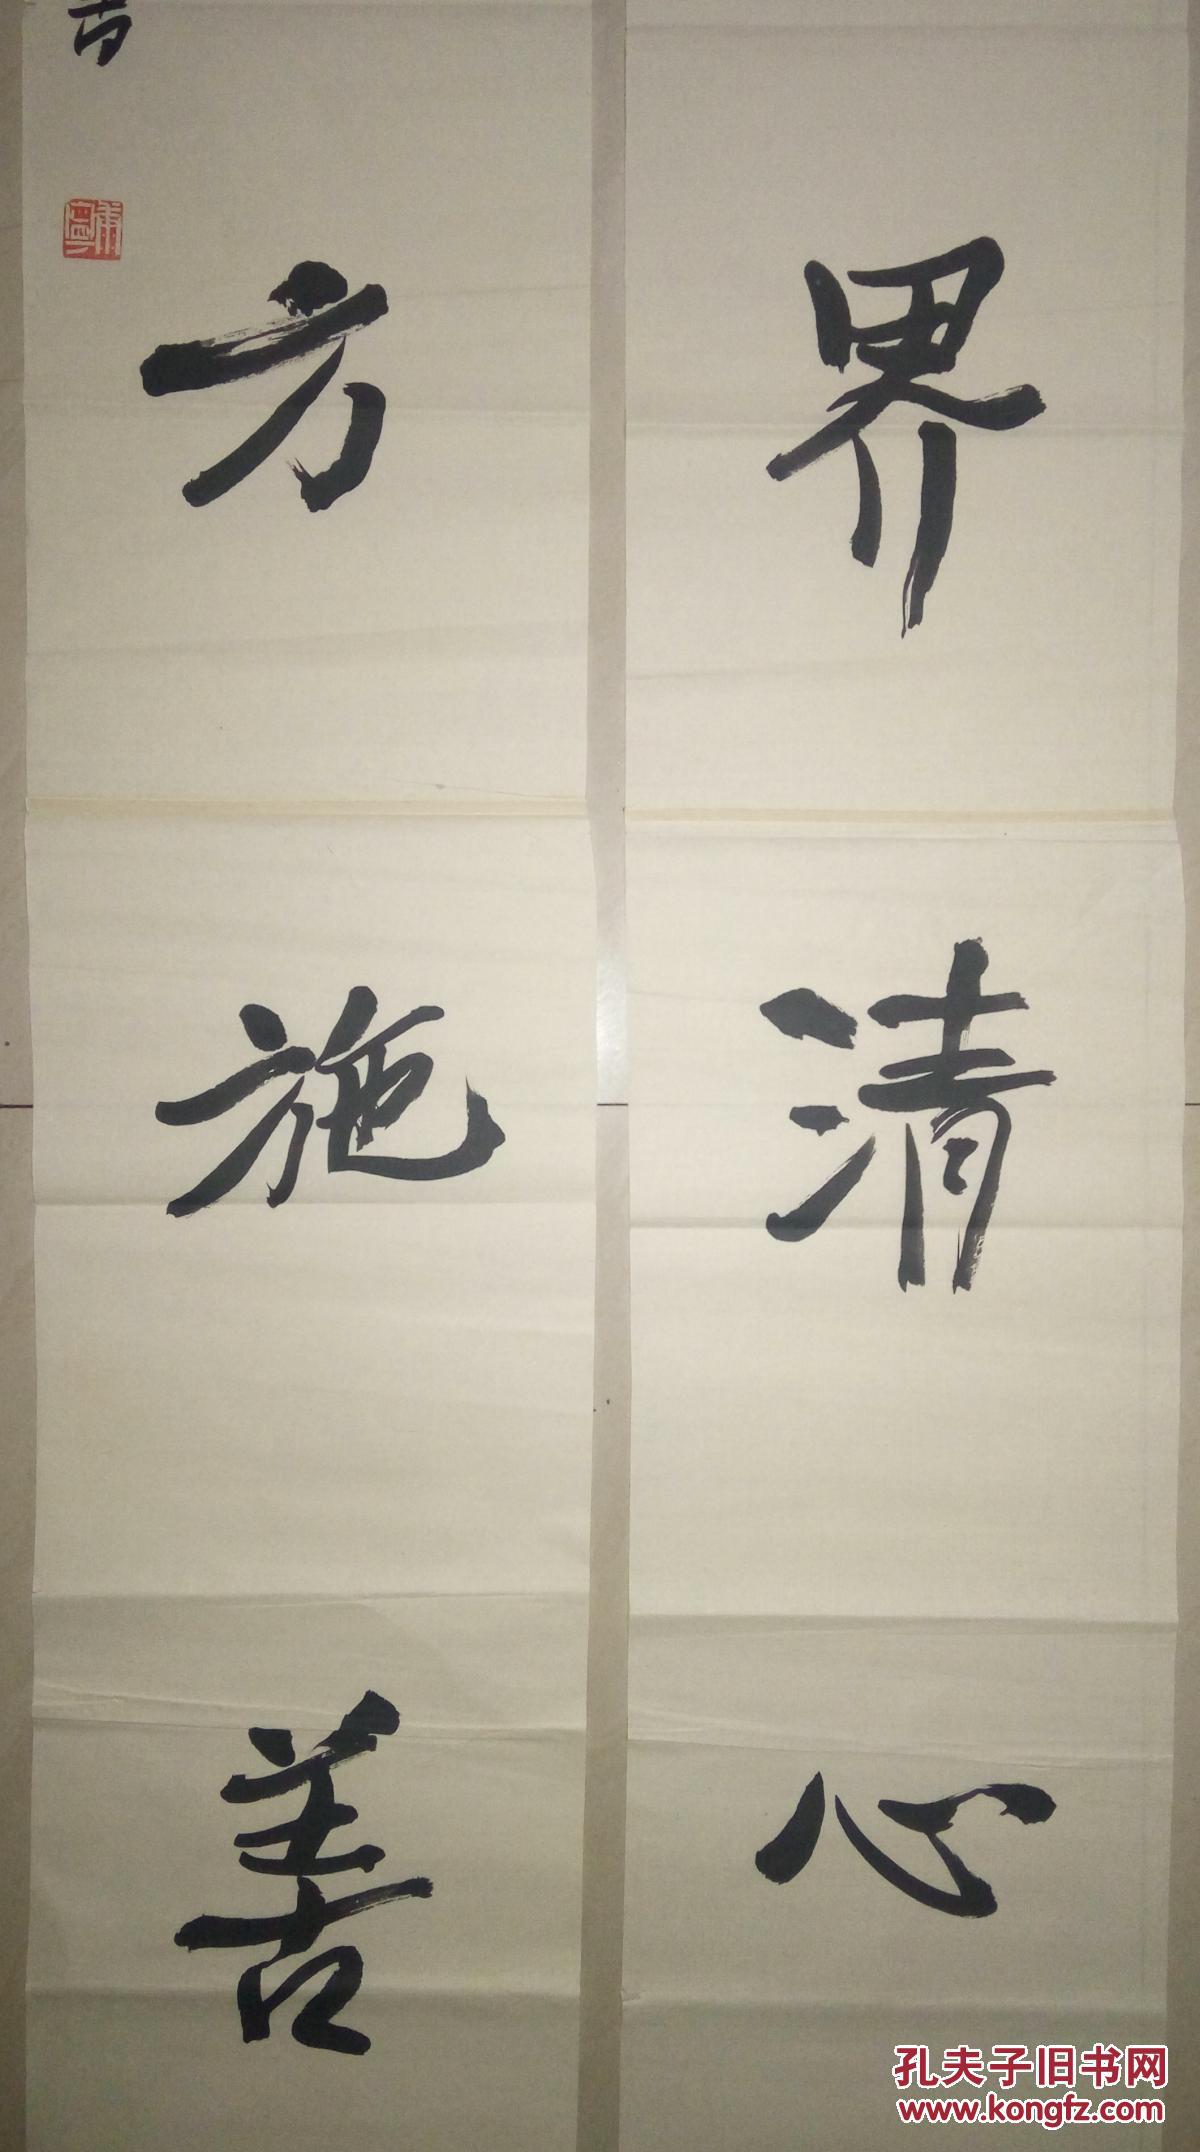 界清心
方施善
孔夫子旧书网
www.kongfz.com